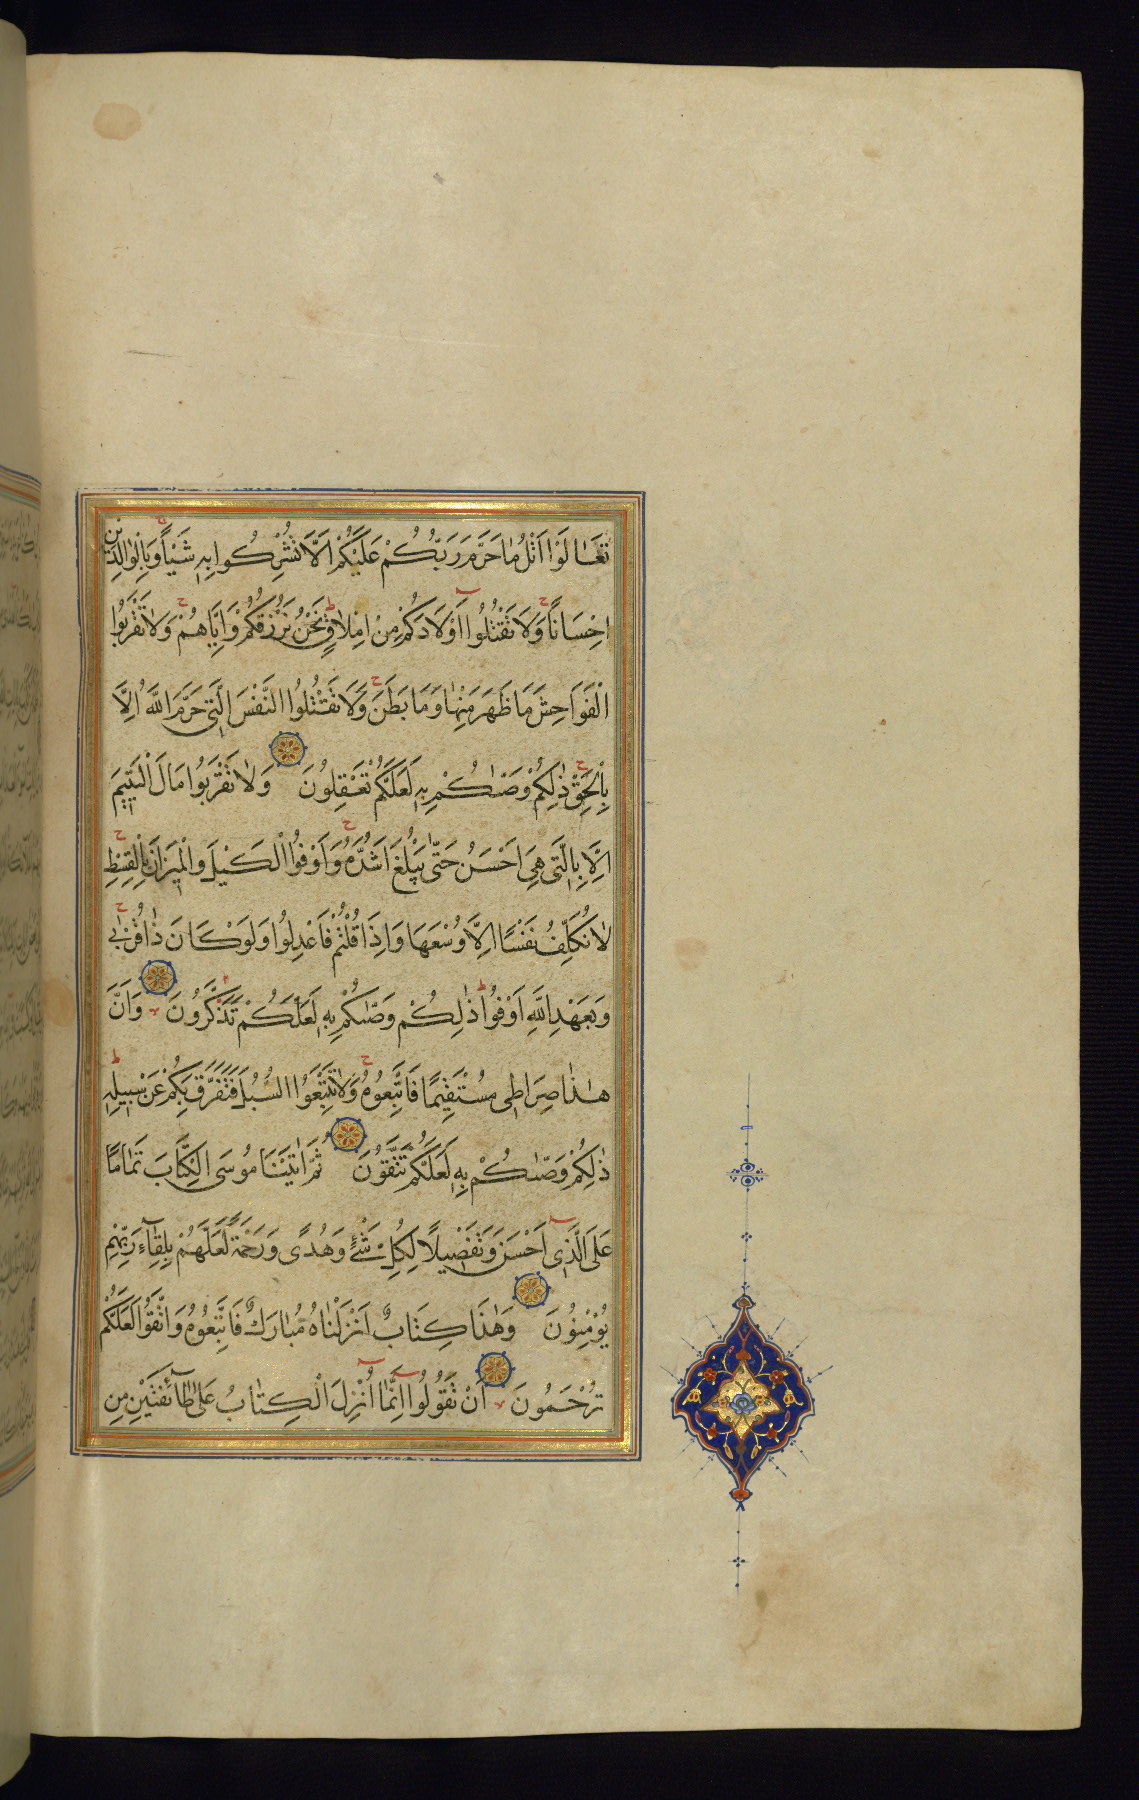 تَعَالَوْا اَتْلُ مَا حَرَّمَ رَبُّكُمْ عَلَيْكُمْ اَلَّا تُشْرِكُوا بِهِ شَيْـًٔا وَبِالْوَالِدَيْنِ
اِحْسَانًا وَلَا تَقْتُلُوا اَوْلَادَكُمْ مِنْ اِمْلَاقٍ نَحْنُ نَرْزُقُكُمْ وَاِيَّاهُمْ وَلَا تَقْرَبُوا
الْفَوَاحِشَ مَا ظَهَرَ مِنْهَا وَمَا بَطَنَ وَلَا تَقْتُلُوا النَّفْسَ الَّتِي حَرَّمَ اللَّهُ اِلَّا
بِالْحَقِّ ذٰلِكُمْ وَصّٰىكُمْ بِهِ لَعَلَّكُمْ تَعْقِلُونَ وَلَا تَقْرَبُوا مَالَ الْيَتِيمِ
اِلَّا بِالَّتِي هِيَ اَحْسَنُ حَتّٰى يَبْلُغَ اَشُدَّهُ وَاَوْفُوا الْكَيْلَ وَالْمِيزَانَ بِالْقِسْطِ
لَا نُكَلِّفُ نَفْسًا اِلَّا وُسْعَهَا وَاِذَا قُلْتُمْ فَاعْدِلُوا وَلَوْ كَانَ ذَا قُرْبٰى
وَبِعَهْدِ اللَّهِ اَوْفُوا ذٰلِكُمْ وَصّٰىكُمْ بِهِ لَعَلَّكُمْ تَذَكَّرُونَ وَاَنَّ
هٰذَا صِرَاطِي مُسْتَقِيمًا فَاتَّبِعُوهُ وَلَا تَتَّبِعُوا السُّبُلَ فَتَفَرَّقَ بِكُمْ عَنْ سَبِيلِهِ
ذٰلِكُمْ وَصّٰىكُمْ بِهِ لَعَلَّكُمْ تَتَّقُونَ ثُمَّ اٰتَيْنَا مُوسَى الْكِتَابَ تَمَامًا
عَلَى الَّذِي اَحْسَنَ وَتَفْصِيلًا لِكُلِّ شَيْءٍ وَهُدًى وَرَحْمَةً لَعَلَّهُمْ بِلِقَاءِ رَبِّهِمْ
يُؤْمِنُونَ وَهٰذَا كِتَابٌ اَنْزَلْنَاهُ مُبَارَكٌ فَاتَّبِعُوهُ وَاتَّقُوا لَعَلَّكُمْ
تُرْحَمُونَ اَنْ تَقُولُوا اِنَّمَا اُنْزِلَ الْكِتَابُ عَلٰى طَائِفَتَيْنِ مِنْ